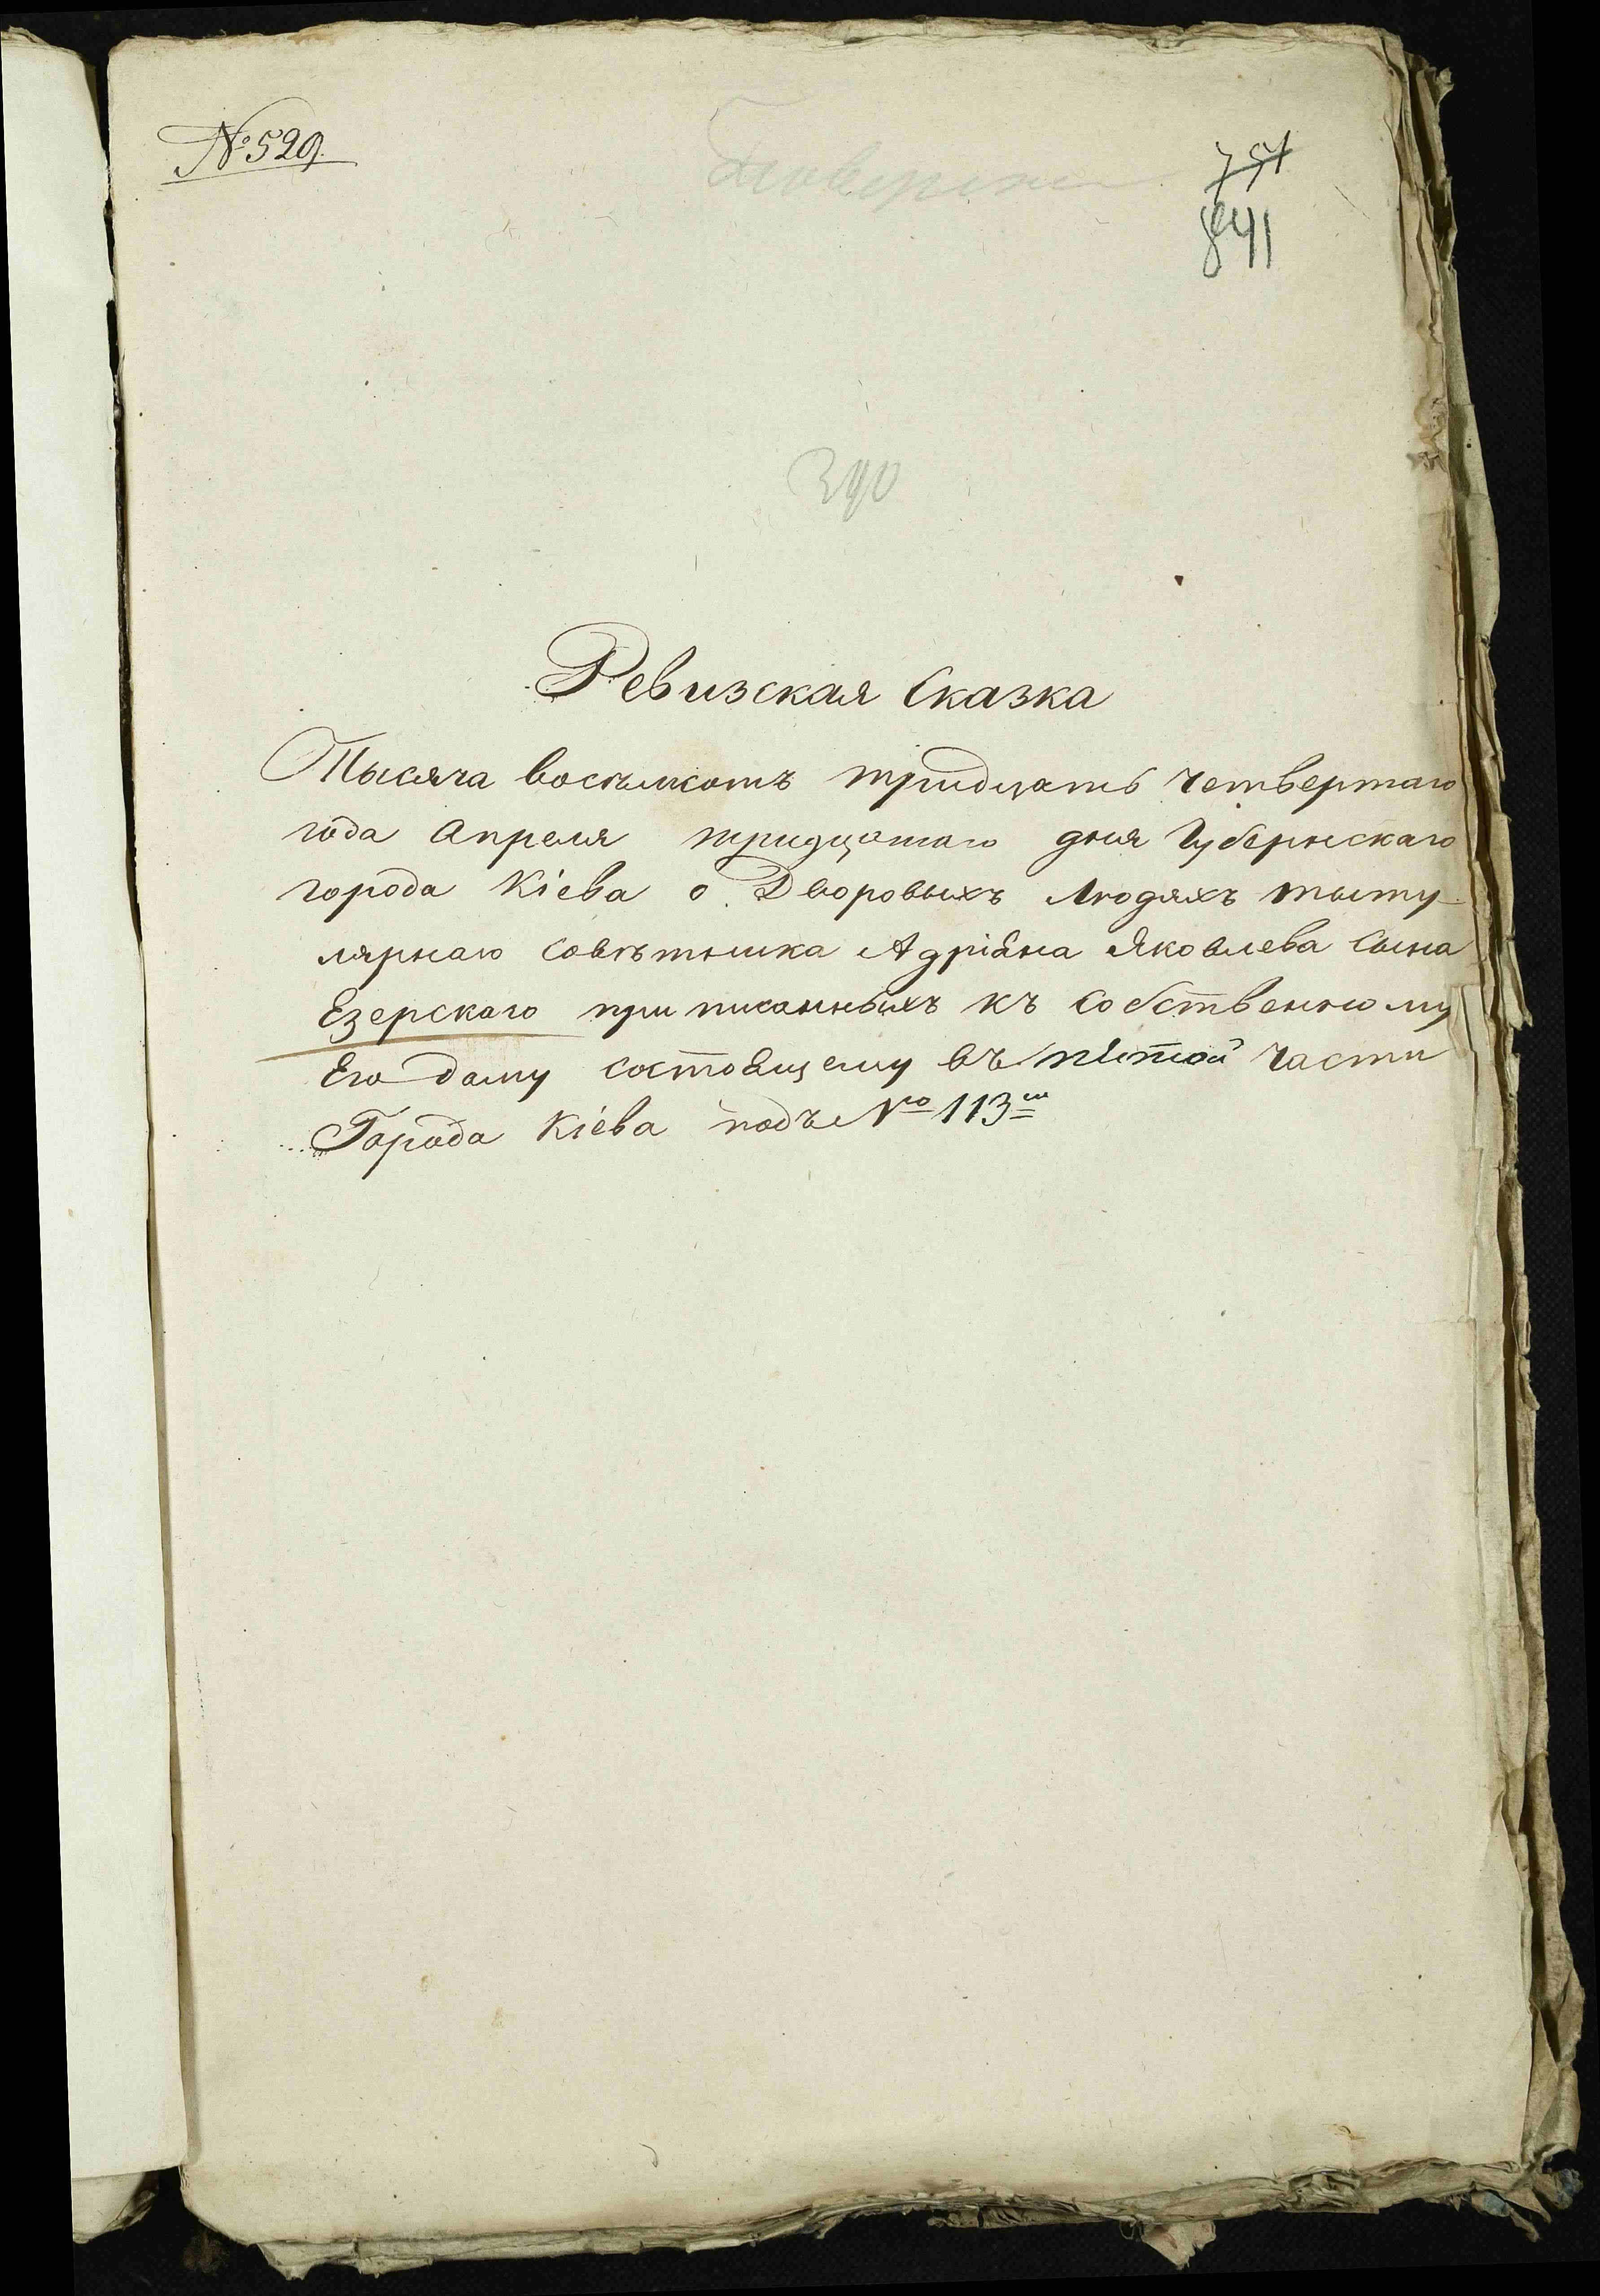 № 529.
751
841
390
Ревизская Сказка
Тысяча восъмсотъ тридцать четвертаго
года Апреля тридцатаго дня Губернскаго
города Кіева о Дворовыхъ Людяхъ титу-
лярнаго Совѣтника Адріана Яковлева Сына
Езерскаго приписанныхъ къ Собственному
Его дому состоящему въ пятой части
Города Кіева подъ № 113м